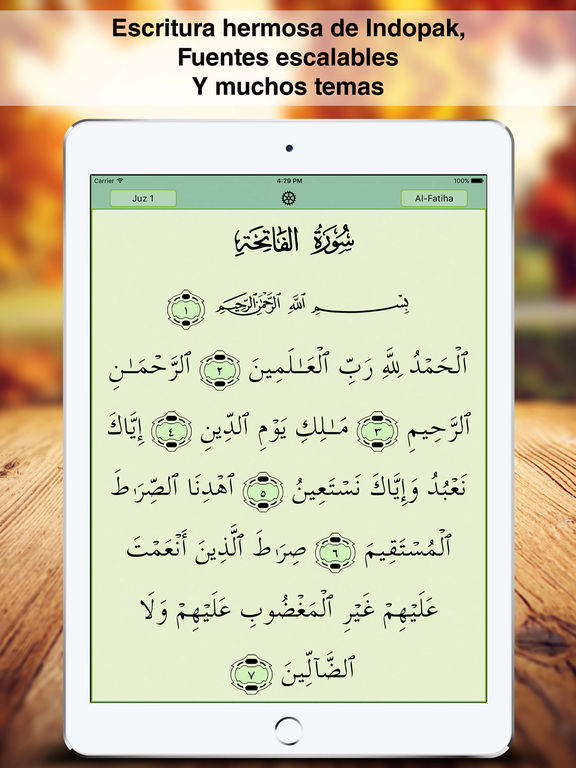 Escritura hermosa de Indopak,
Fuentes escalables
Y muchos temas
Carrier 4:29 PM 100%
Juz 1 Al-Fatiha
سُورَةُ الفَاتِحَةِ
بِسْمِ اللَّهِ الرَّحْمَٰنِ الرَّحِيمِ ١
ٱلْحَمْدُ لِلَّهِ رَبِّ ٱلْعَـٰلَمِينَ ٢ ٱلرَّحْمَـٰنِ
ٱلرَّحِيمِ ٣ مَـٰلِكِ يَوْمِ ٱلدِّينِ ٤ إِيَّاكَ
نَعْبُدُ وَإِيَّاكَ نَسْتَعِينُ ٥ ٱهْدِنَا ٱلصِّرَٰطَ
ٱلْمُسْتَقِيمَ ٦ صِرَٰطَ ٱلَّذِينَ أَنْعَمْتَ
عَلَيْهِمْ غَيْرِ ٱلْمَغْضُوبِ عَلَيْهِمْ وَلَا
ٱلضَّآلِّينَ ٧